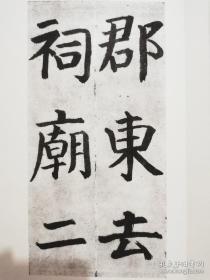 郡東去
祠廟二